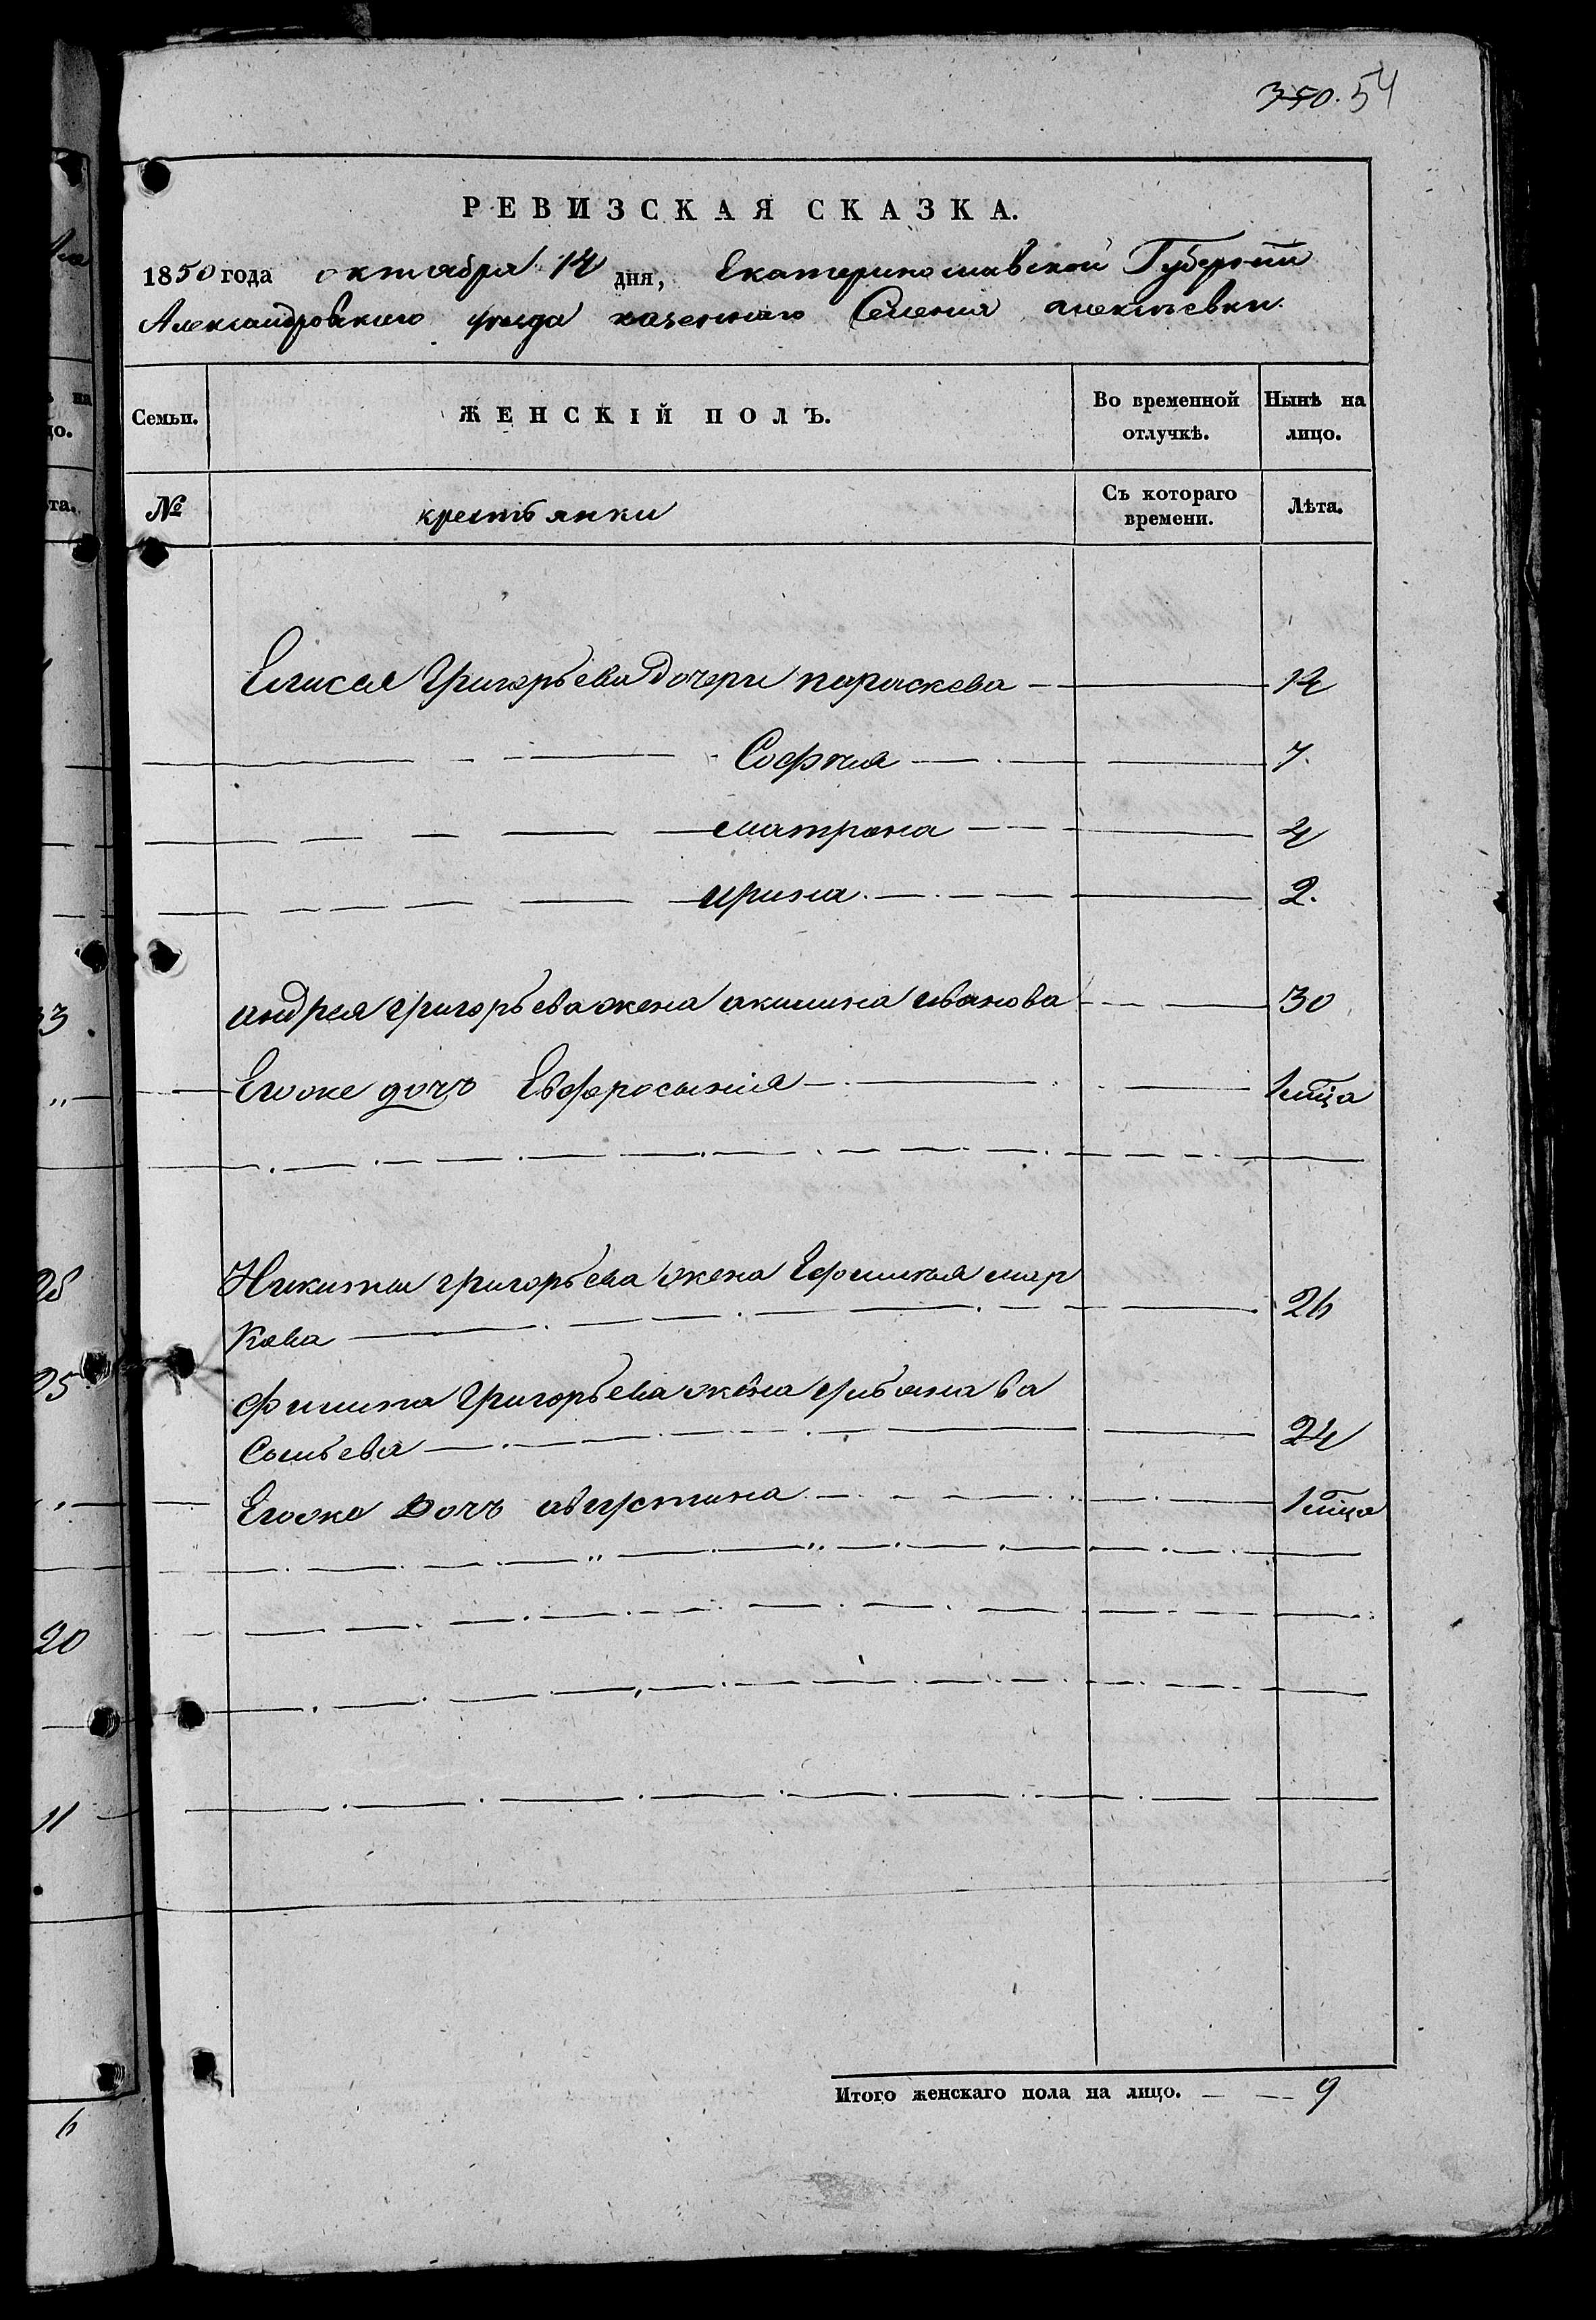 350. 54
РЕВИЗСКАЯ СКАЗКА.
1850 года октября 14 дня, Екатеринославской Губерніи
Александровскаго уезда казеннаго Селенія алексѣевки.
Семьи. ЖЕНСКІЙ ПОЛЪ. Во временной отлучкѣ. Нынѣ на лицо.
№ крестьянки Съ котораго времени. Лѣта.
Елисея Григорьева Дочери параскева 14
Софтия 7.
матрона 4
ирина. 2.
андрея григорьева жена акилина иванова 30
Егоже дочь Евфросинія 1 мѣца
Никиты григорьева жена Ефимия мар
кова 26
филипа Григорьева жена улианава
24
Егоже Дочъ августина 1 мѣца
Итого женскаго пола на лицо. 9
на
цо.
та.
33
25
20
11
6